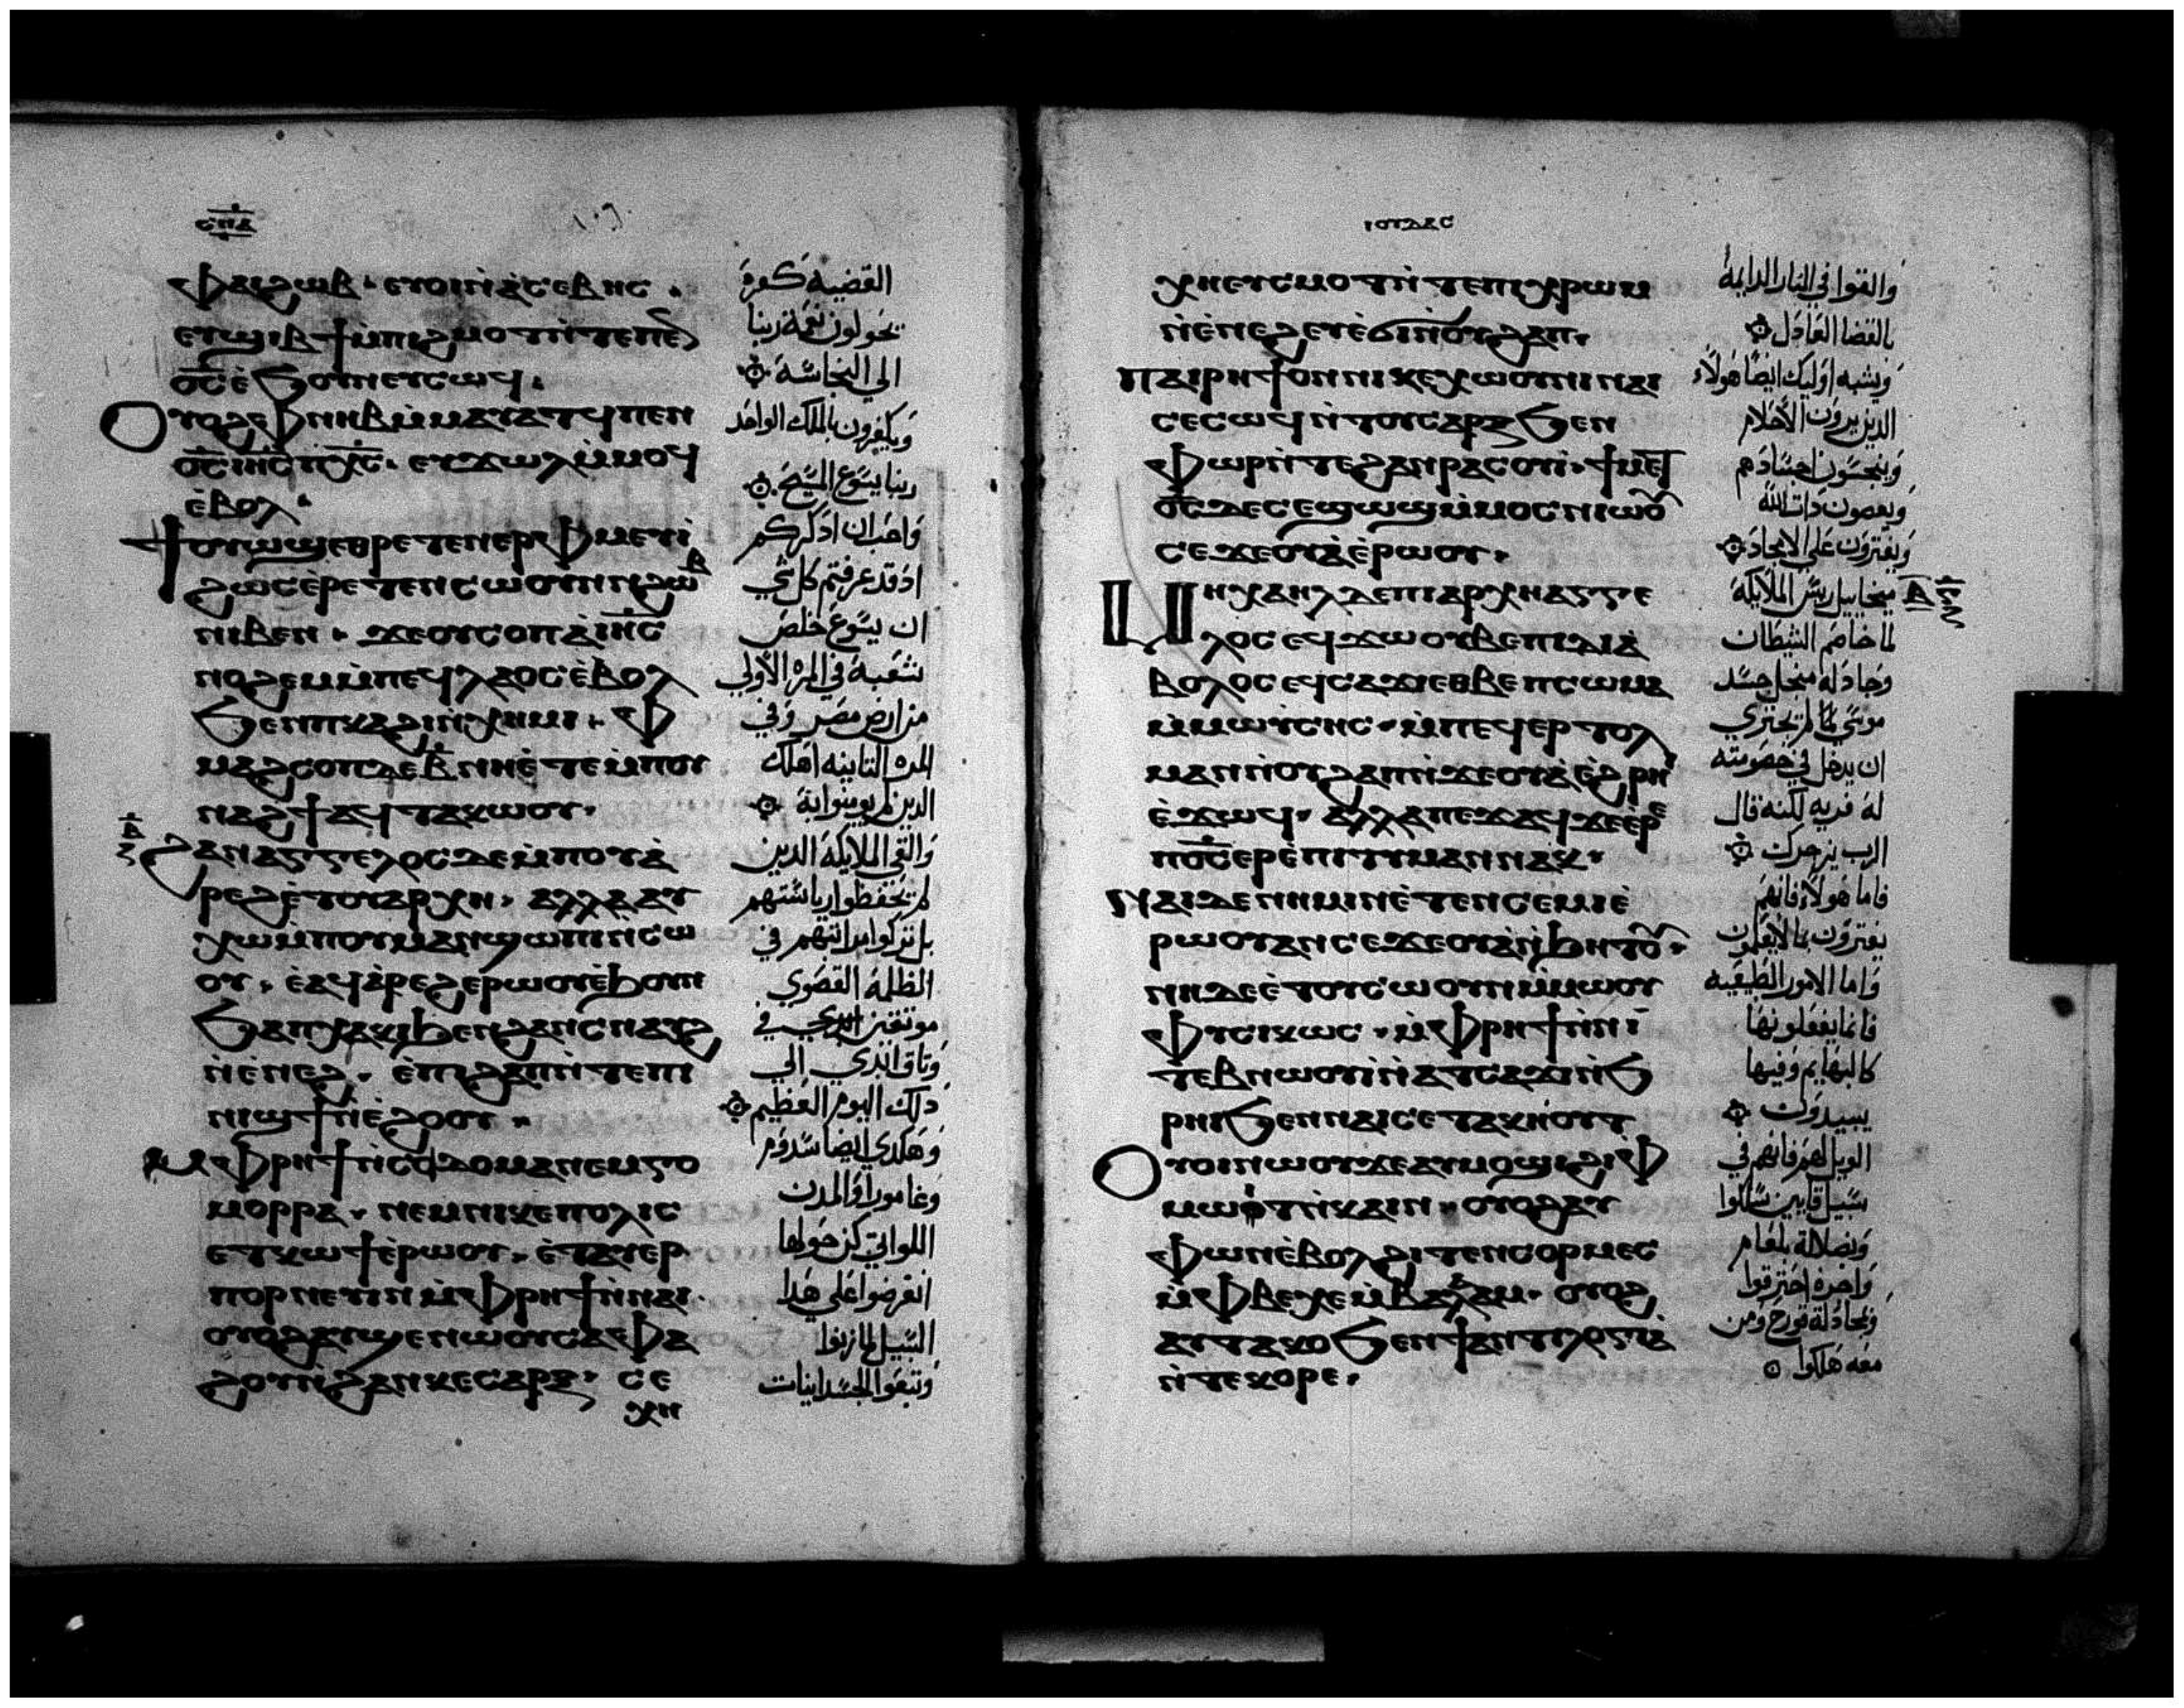 ⲥⲡⲇ
ⲫⲁⲓϩⲱⲃ · ⲉⲩⲟⲓⲛ̀ⲁ̀ⲥⲉⲃⲏⲥ .
ⲉⲩϣⲓⲃϯⲙ̀ⲡⲓϩⲙⲟⲧⲛ̀ⲧⲉⲡⲉⲛ
ⲟ̅ⲥ̅ⲉ̀ϧⲟⲩⲛⲉⲩⲥⲱϥ .
ⲟⲩⲟϩⲫⲛⲏⲃⲙ̀ⲙⲁⲩⲁⲧϥⲡⲉⲛ
ⲟ̅ⲥ̅ⲓⲏ̅ⲥ̅ⲡⲭ̅ⲥ̅ · ⲉⲩϫⲱⲗⲙ̀ⲙⲟϥ
ⲉ̀ⲃⲟⲗ ·
ϯⲟⲩⲱϣⲉⲑⲣⲉⲧⲉⲛⲉⲣⲫⲙⲉⲩⲓ̀
ϩⲱⲥⲉ̀ⲣⲉⲧⲉⲛⲥⲱⲟⲩⲛⲛϩⲱⲃ
ⲛⲓⲃⲉⲛ · ϫⲉⲟⲩⲥⲟⲡⲁ̀ⲓⲏ̅ⲥ̅
ⲛⲟϩⲉⲙⲙ̀ⲡⲉϥⲗⲁⲟⲥⲉ̀ⲃⲟⲗ
ϧⲉⲛⲡⲕⲁϩⲓⲛ̀ⲭⲏⲙⲓ · ⲫ
ⲙⲁϩⲥⲟⲡⲇⲉⲃ̅ⲛⲏⲉ̀ⲧⲉⲙ̀ⲡⲟⲩ
ⲛⲁϩϯⲁϥⲧⲁⲕⲱⲟⲩ ·
ϩⲁⲛⲁⲅⲅⲉⲗⲟⲥⲇⲉⲙ̀ⲡⲟⲩⲁ̀
ⲣⲉϩⲉ̀ⲧⲟⲩⲁⲣⲭⲏ · ⲁⲗⲗⲁⲁⲩ
ⲭⲱⲙ̀ⲡⲟⲩⲙⲁⲛϣⲱⲡⲓⲛ̀ⲥⲱ
ⲟⲩ · ⲉ̀ⲁϥⲁ̀ⲣⲉϩⲉⲣⲱⲟⲩⲉ̀ϧⲟⲩⲛ
ϧⲁⲡⲭⲁⲕⲓϧⲉⲛϩⲁⲛⲥⲛⲁⲩϩ
ⲛ̀ⲉ̀ⲛⲉϩ · ⲉ̀ⲡϩⲁⲡⲛ̀ⲧⲉⲡⲓ
ⲛⲓϣϯⲛ̀ⲉ̀ϩⲟⲟⲩ ·
ⲙⲫⲣⲏϯⲛ̀ⲥⲟⲇⲟⲙⲁⲛⲉⲙⲅⲟ
ⲙⲟⲣⲣⲁ · ⲛⲉⲙⲛⲓⲕⲉⲡⲟⲗⲓⲥ
ⲉⲧⲕⲱϯⲉ̀ⲣⲱⲟⲩ · ⲉ̀ⲧⲁⲩⲉⲣ
ⲡⲟⲣⲛⲉⲩⲓⲛ ⲙ̀ⲫⲣⲏϯⲛ̀ⲛⲁⲓ ·
ⲟⲩⲟϩⲁⲩϣⲉⲛⲱⲟⲩⲥⲁⲫⲁ
ϩⲟⲩⲛ̀ϩⲁⲛⲕⲉⲥⲁⲣⲝ · ⲥⲉ
ⲭⲏ
القضيه كفره
يحولون نعمة ربنا
الي النجاسة ۞
ويكفرون بالملك الواحد
ربنا يسوع المسيح ۞
واحب ان اذكركم
اذ قد عرفتم كل شي
ان يسوع خلص
شعبه في المره الاولي
من ارض مصر وفي
المره الثانيه اهلك
الذين لم يومنوا به ۞
والقي الملايكه الذين
لم يحفظوا رياستهم
بل تركوا مراتبهم في
الظلمة القصوي
موثقين في
وثاق ابدي الي
ذلك اليوم العظيم ۞
وهكذي ايضا سدوم
وغامورا والمدن
اللواتي كن حولها
انقرضوا علي هذا
السبيل لما زنوا
وتبعوا الجسدانيات
ⲓⲟⲩⲇⲁⲥ
ⲭⲏⲉⲩⲥⲙⲟⲧⲛ̀ⲧⲉⲡⲓⲭⲣⲱⲙ
ⲛ̀ⲉ̀ⲛⲉϩⲉⲩⲉ̀ϭⲓⲛ̀ⲟⲩϩⲁⲡ ·
ⲡⲁⲓⲣⲏϯⲟⲛⲛⲓⲕⲉⲭⲱⲟⲩⲛⲓⲛⲁⲓ
ⲥⲉⲥⲱϥⲛ̀ⲧⲟⲩⲥⲁⲣⲝϧⲉⲛ
ⲫⲱⲣⲛ̀ⲧⲉϩⲁⲛⲣⲁⲥⲟⲩⲓ̀ · ϯⲙⲉⲧ
ⲟ̅ⲥ̅ⲇⲉⲥⲉϣⲱϣⲙ̀ⲙⲟⲥⲛⲓⲱⲟⲩ
ⲥⲉϫⲉⲟⲩⲁ̀ⲉ̀ⲣⲱⲟⲩ ·
ⲙⲏⲭⲁⲏⲗⲇⲉⲡⲓⲁⲣⲭⲏⲁⲅⲅⲉ
ⲗⲟⲥⲉϥϫⲱⲟⲩⲃⲉⲡⲓⲇⲓⲁ̀
ⲃⲟⲗⲟⲥⲉϥⲥⲁϫⲓⲉⲑⲃⲉⲡⲥⲱⲙⲁ
ⲙ̀ⲙⲱⲩ̀ⲥⲏⲥ · ⲙ̀ⲡⲉϥⲉⲣⲧⲟⲗ
ⲙⲁⲛⲛ̀ⲟⲩϩⲁⲡⲛ̀ϫⲉⲟⲩⲁ̀ⲉ̀ϩⲣⲏⲓ
ⲉ̀ϫⲱϥ · ⲁⲗⲗⲁⲡⲉϫⲁϥϫⲉⲉ̀ⲣⲉ
ⲡⲟ̅ⲥ̅ⲉⲣⲉ̀ⲡⲓⲧⲓⲙⲁⲛⲛⲁⲕ ·
ⲛⲁⲓⲇⲉⲛⲏⲙⲛ̀ⲉ̀ⲧⲉⲛⲥⲉⲙⲓⲉ̀
ⲣⲱⲟⲩⲁⲛⲥⲉϫⲉⲟⲩⲁ̀ⲛ̀ϧⲏⲧⲟⲩ ·
ⲛⲏⲇⲉⲉ̀ⲧⲟⲩⲥⲱⲟⲩⲛⲙ̀ⲙⲱⲟⲩ
ⲫⲩⲥⲓⲕⲱⲥ · ⲙ̀ⲫⲣⲏϯⲛ̀ⲛⲓ
ⲧⲉⲃⲛⲱⲟⲩⲓ̀ⲛ̀ⲁⲧⲥⲁϫⲓⲛ̀ϧ
ⲣⲏⲓϧⲉⲛⲛⲁⲓⲥⲉⲧⲁⲕⲏⲟⲩⲧ
ⲟⲩⲟⲓⲛⲱⲟⲩϫⲉⲁⲩⲙⲟϣⲓϩⲓⲫ
ⲙⲱⲓⲧⲛ̀ⲕⲁⲓⲛ · ⲟⲩⲟϩⲁⲩ
ⲫⲱⲛⲉ̀ⲃⲟⲗϩⲓⲧⲉⲛⲥⲟⲣⲙⲉⲥ
ⲙ̀ⲫⲃⲉⲭⲉⲙ̀ⲃⲁⲗⲁⲁⲙ · ⲟⲩⲟϩ
ⲁⲩⲧⲁⲕⲟϧⲉⲛϯⲁⲛⲧⲓⲗⲟⲅⲓⲁ̀
ⲛ̀ⲧⲉⲕⲟⲣⲉ ·
والقوا في النار الدايمة
بالقضا العادل ۞
ويشبه اوليك ايضا هولاء
الذين يرون الاحلام
وينجسون اجسادهم
ويعصون ذات الله
ويفترون علي الامجاد ۞
ميخاييل ريس الملايكه
لما خاصم الشيطان
وجادله من اجل جسد
موسي لم يجتري
ان يدخل في خصومته
له فريه لكنه قال
الرب ينهرك ۞
فاما هولاء فانهم
يفترون بما لا يعلمون
واما الامور الطبيعيه
فانما يفعلونها
كالبهايم وفيها
يبيدون ۞
الويل لهم فانهم في
سبيل قايين سلكوا
وبضلالة بلعام
واجره احترقوا
وبمجادلة قورح ومن
معه هلكوا ۞